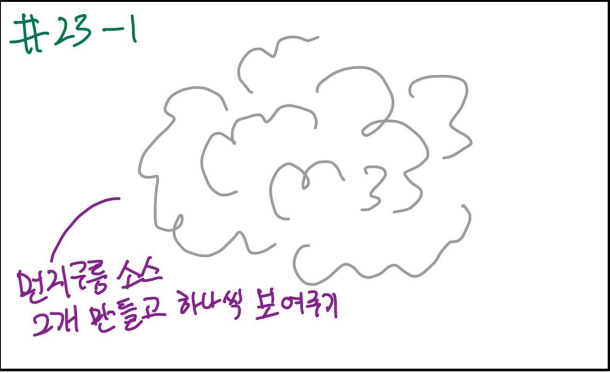 #23-1
먼지구름 소스
2개 만들고 하나씩 보여주기